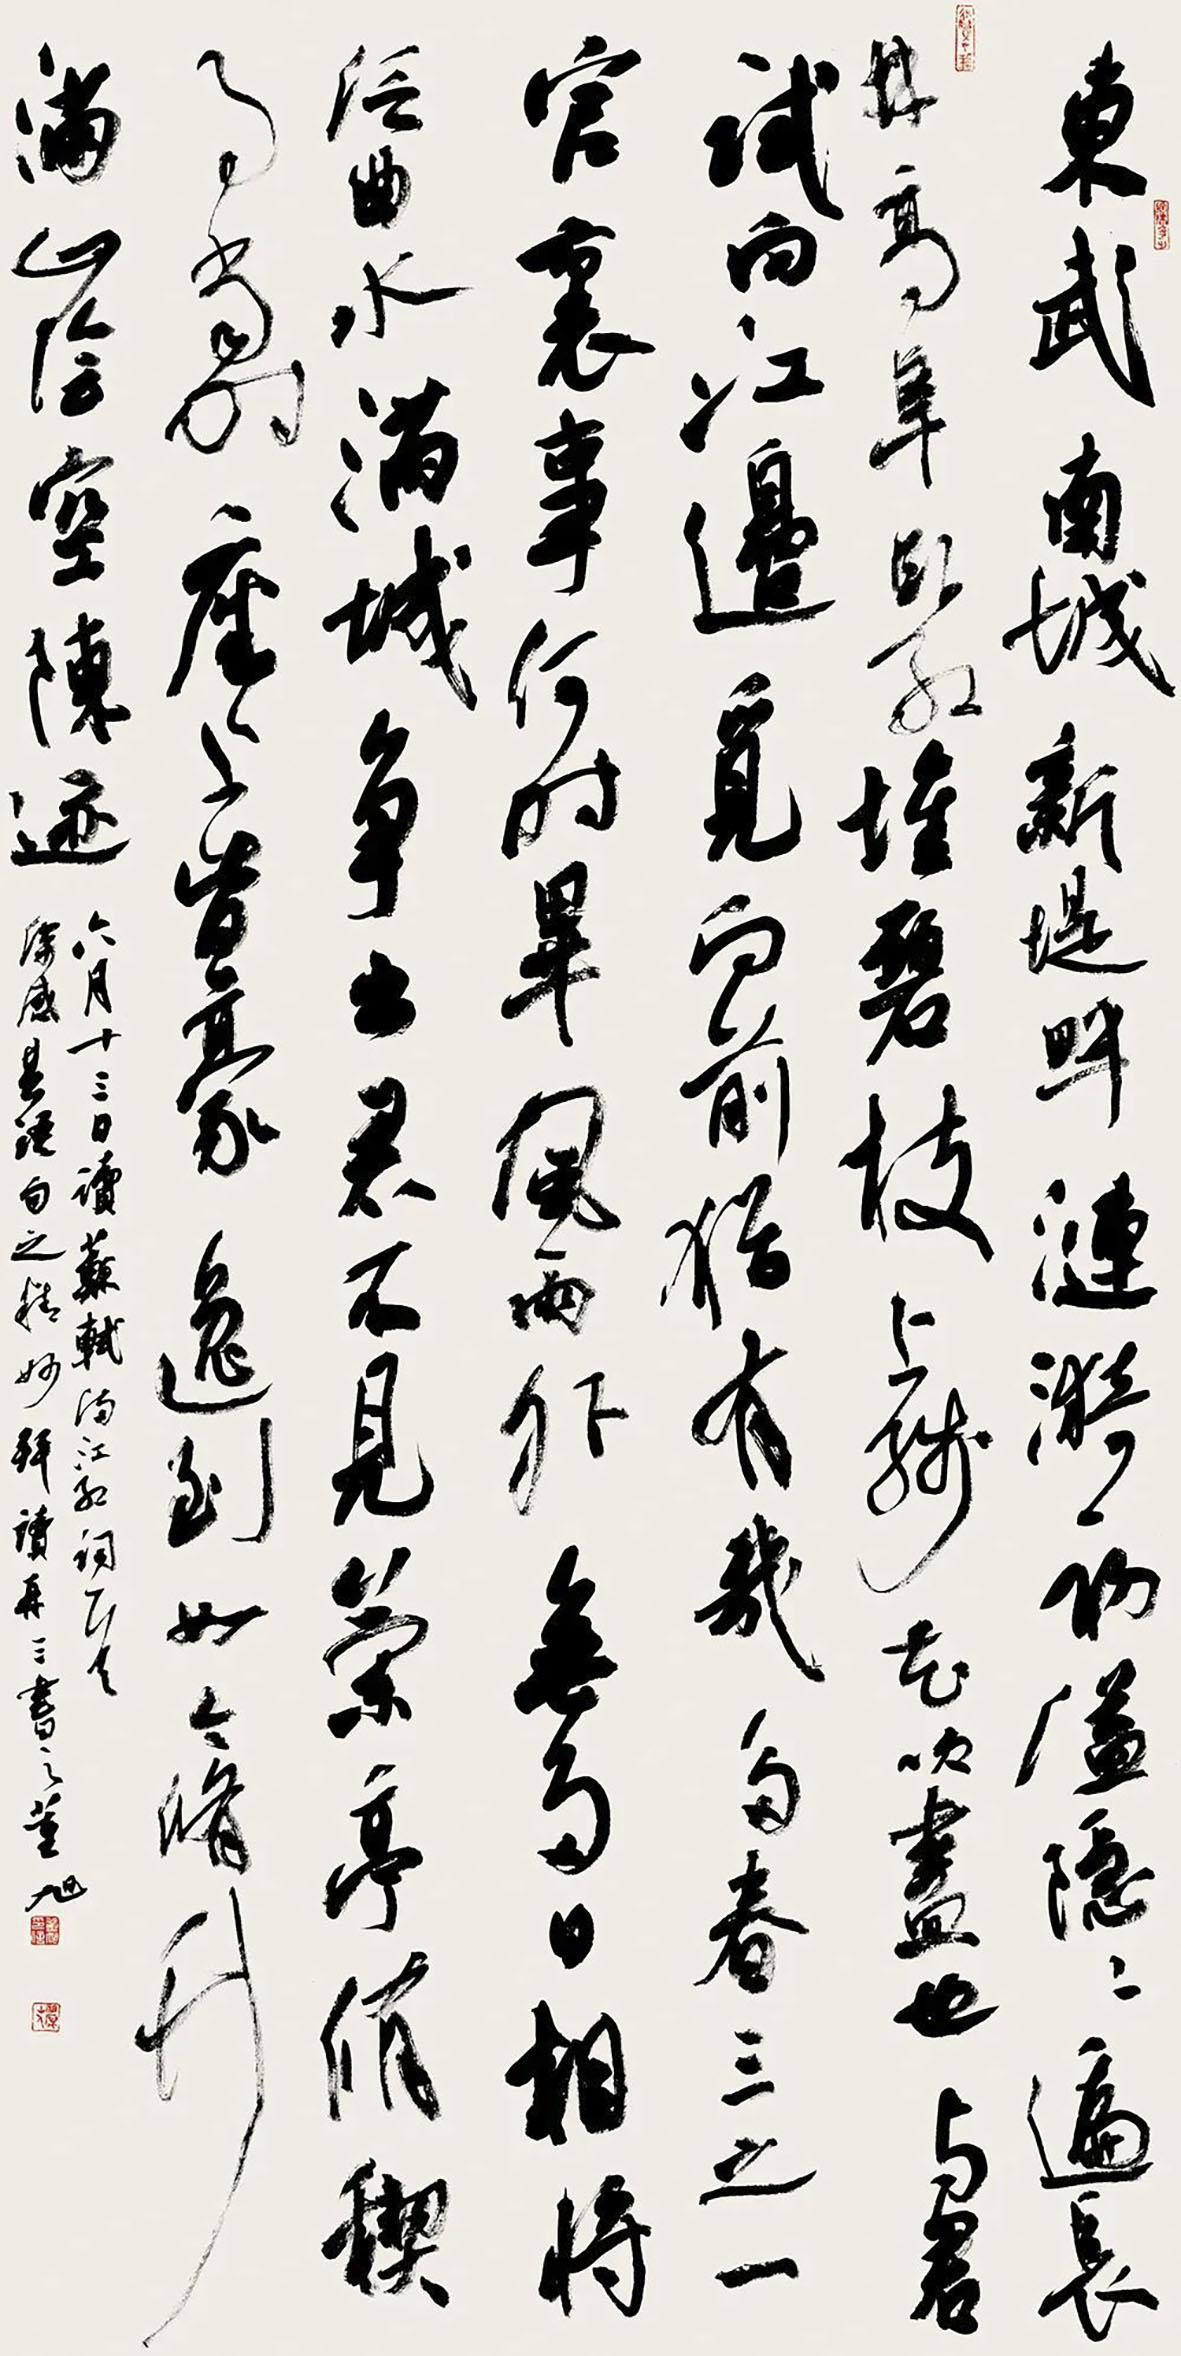 東武南城新堤畔漣漪初溢隱々遍長
林高阜臥紅堆碧枝上殘花吹盡也与君
試向江邊覓向前猶有幾多春三之一
官裏事何時畢風雨外無多日相將
泛曲水滿城争出君不見蘭亭脩禊
事當時座上皆豪逸到如今脩竹
滿山陰空陳迹
六月十三日讀蘇軾滿江紅詞
深感其語句之精妙拜讀再三書之董旭